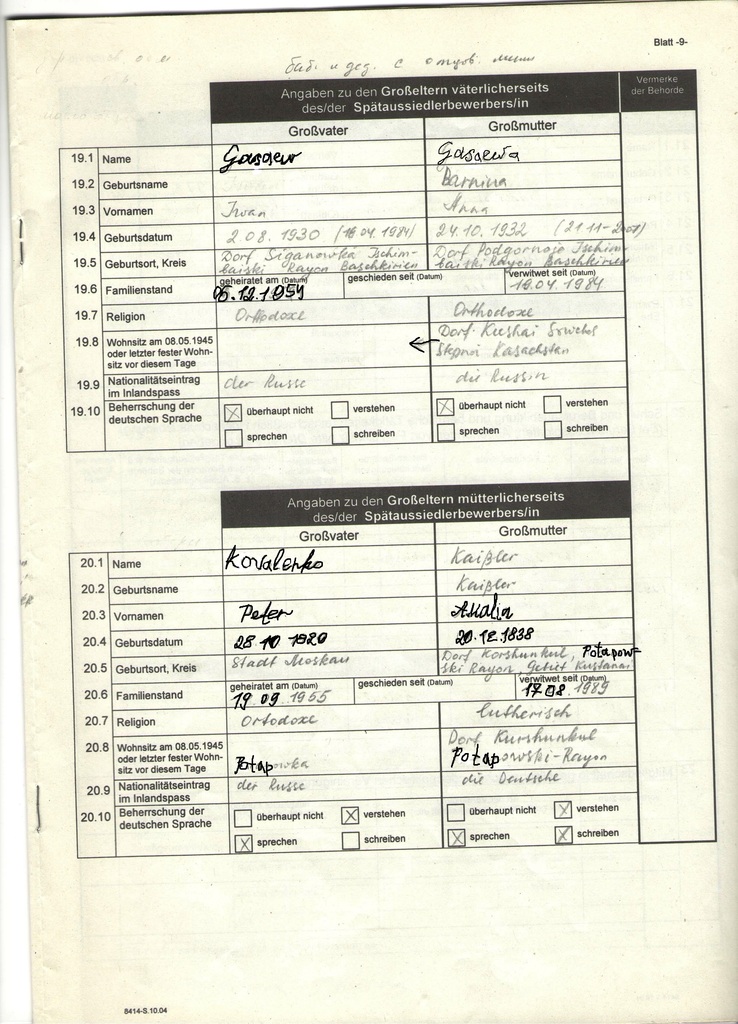 Blatt -9-
с
Angaben zu den Großeltern väterlicherseits
des/der Spätaussiedlerbewerbers/in
Vermerke
der Behörde
Großvater Großmutter
19.1 Name Gasaew Gasaewa
19.2 Geburtsname Barnina
19.3 Vornamen Iwan Anna
19.4 Geburtsdatum 2.08.1930 (19.04.1984) 24.10.1932 (21.11-2001)
19.5 Geburtsort, Kreis Dorf Siganowka Ischim- Dorf Podgornoje Ischim-
baiski Rayon Baschkirien baiski Rayon Baschkirien
19.6 Familienstand geheiratet am (Datum) geschieden seit (Datum) verwitwet seit (Datum)
05.12.1954 19.04.1984
19.7 Religion Orthodoxe Orthodoxe
19.8 Wohnsitz am 08.05.1945
oder letzter fester Wohn-
sitz vor diesem Tage
← Dorf Kushai Sowchos
Stepnoi Kasachstan
19.9 Nationalitätseintrag
im Inlandspass
der Russe die Russin
19.10 Beherrschung der
deutschen Sprache
☒ überhaupt nicht ☐ verstehen ☒ überhaupt nicht ☐ verstehen
☐ sprechen ☐ schreiben ☐ sprechen ☐ schreiben
Angaben zu den Großeltern mütterlicherseits
des/der Spätaussiedlerbewerbers/in
Großvater Großmutter
20.1 Name Kovalenko Kaißler
20.2 Geburtsname Kaißler
20.3 Vornamen Peter Amalia
20.4 Geburtsdatum 28 10 1920 20.12.1838
20.5 Geburtsort, Kreis Stadt Moskau Dorf Korshunkul, Potapow-
ski Rayon, Gebiet Kustanai
20.6 Familienstand geheiratet am (Datum) geschieden seit (Datum) verwitwet seit (Datum)
19 09 1955 17 08 1989
20.7 Religion Ortodoxe lutherisch
20.8 Wohnsitz am 08.05.1945
oder letzter fester Wohn-
sitz vor diesem Tage
Potapowka
Dorf Kurshunkul
Potapowski-Rayon
20.9 Nationalitätseintrag
im Inlandspass
der Russe die Deutsche
20.10 Beherrschung der
deutschen Sprache
☐ überhaupt nicht ☒ verstehen ☐ überhaupt nicht ☒ verstehen
☒ sprechen ☐ schreiben ☒ sprechen ☒ schreiben
8414-S.10.04